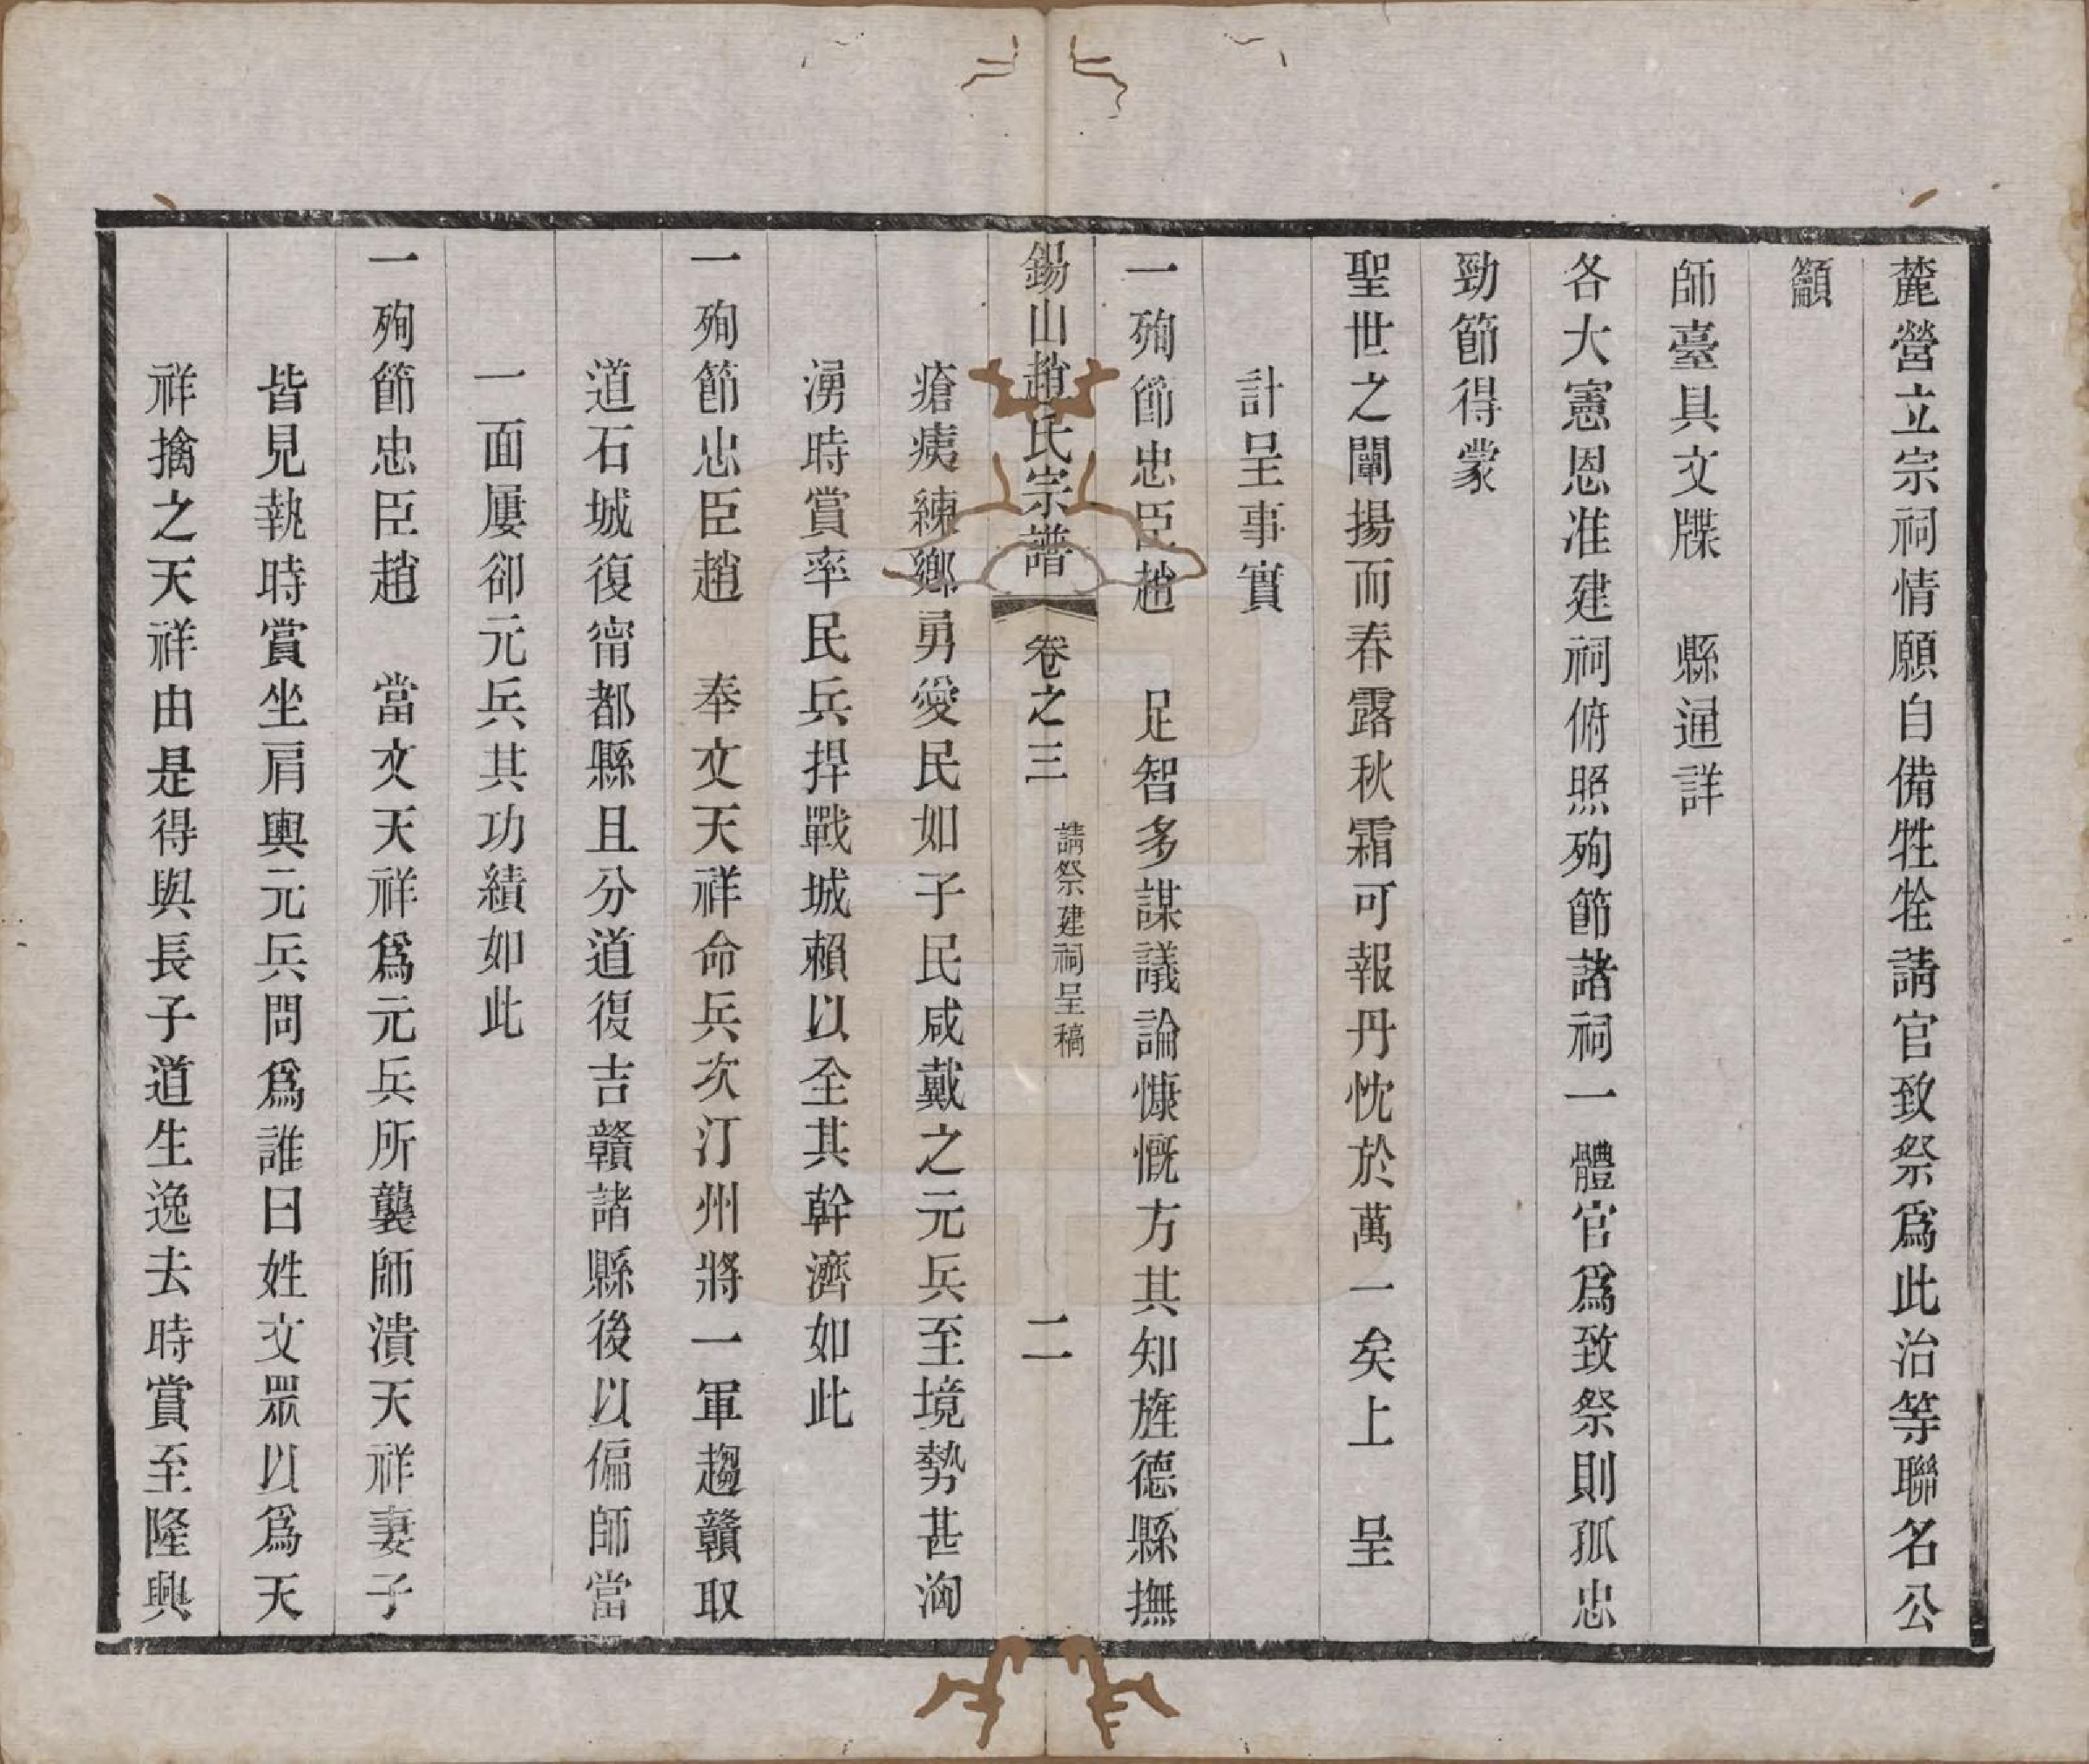 麓營立宗祠情願自備牲牷請官致祭爲此治等聯名公
籲
師臺具文牒　縣通詳
各大憲恩准建祠俯照殉節諸祠一體官爲致祭則孤忠
勁節得蒙
聖世之闡揚而春露秋霜可報丹忱於萬一矣上　呈
計呈事實
一殉節忠臣趙　足智多謀議論慷慨方其知旌德縣撫
錫山趙氏宗譜　卷之三　請祭建祠呈稿　二
瘡痍練鄉勇愛民如子民咸戴之元兵至境勢甚洶
湧時賞率民兵捍戰城賴以全其幹濟如此
一殉節忠臣趙　奉文天祥命兵次汀州將一軍趨贛取
道石城復甯都縣且分道復吉贛諸縣後以偏師當
一面屢卻元兵其功績如此
一殉節忠臣趙　當文天祥爲元兵所襲師潰天祥妻子
皆見執時賞坐肩輿元兵問爲誰曰姓文眾以爲天
祥擒之天祥由是得與長子道生逸去時賞至隆興